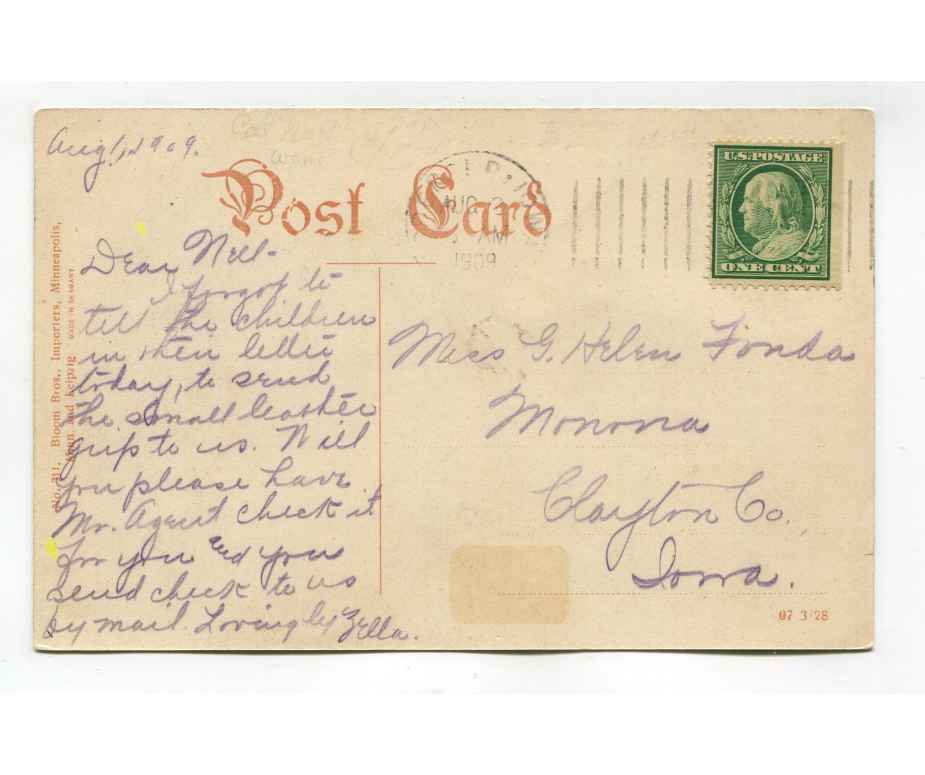 Aug 1, 1909.
Post Card
AUG 2
AM
1909
U.S. POSTAGE
ONE CENT
No. 211. Bloom Bros., Importers, Minneapolis,
Bonn and Leipzig MADE IN GERMANY.
Dear Nell-
I forgot to
tell the children
in their letter
today, to send
the small leather
grip to us. Will
you please have
Mr. Agent check it
for you and you
send check to us
by mail. Lovingly Zella.
Miss G. Helen Fonda
Monona
Clayton Co.
Iowa.
07 3 28